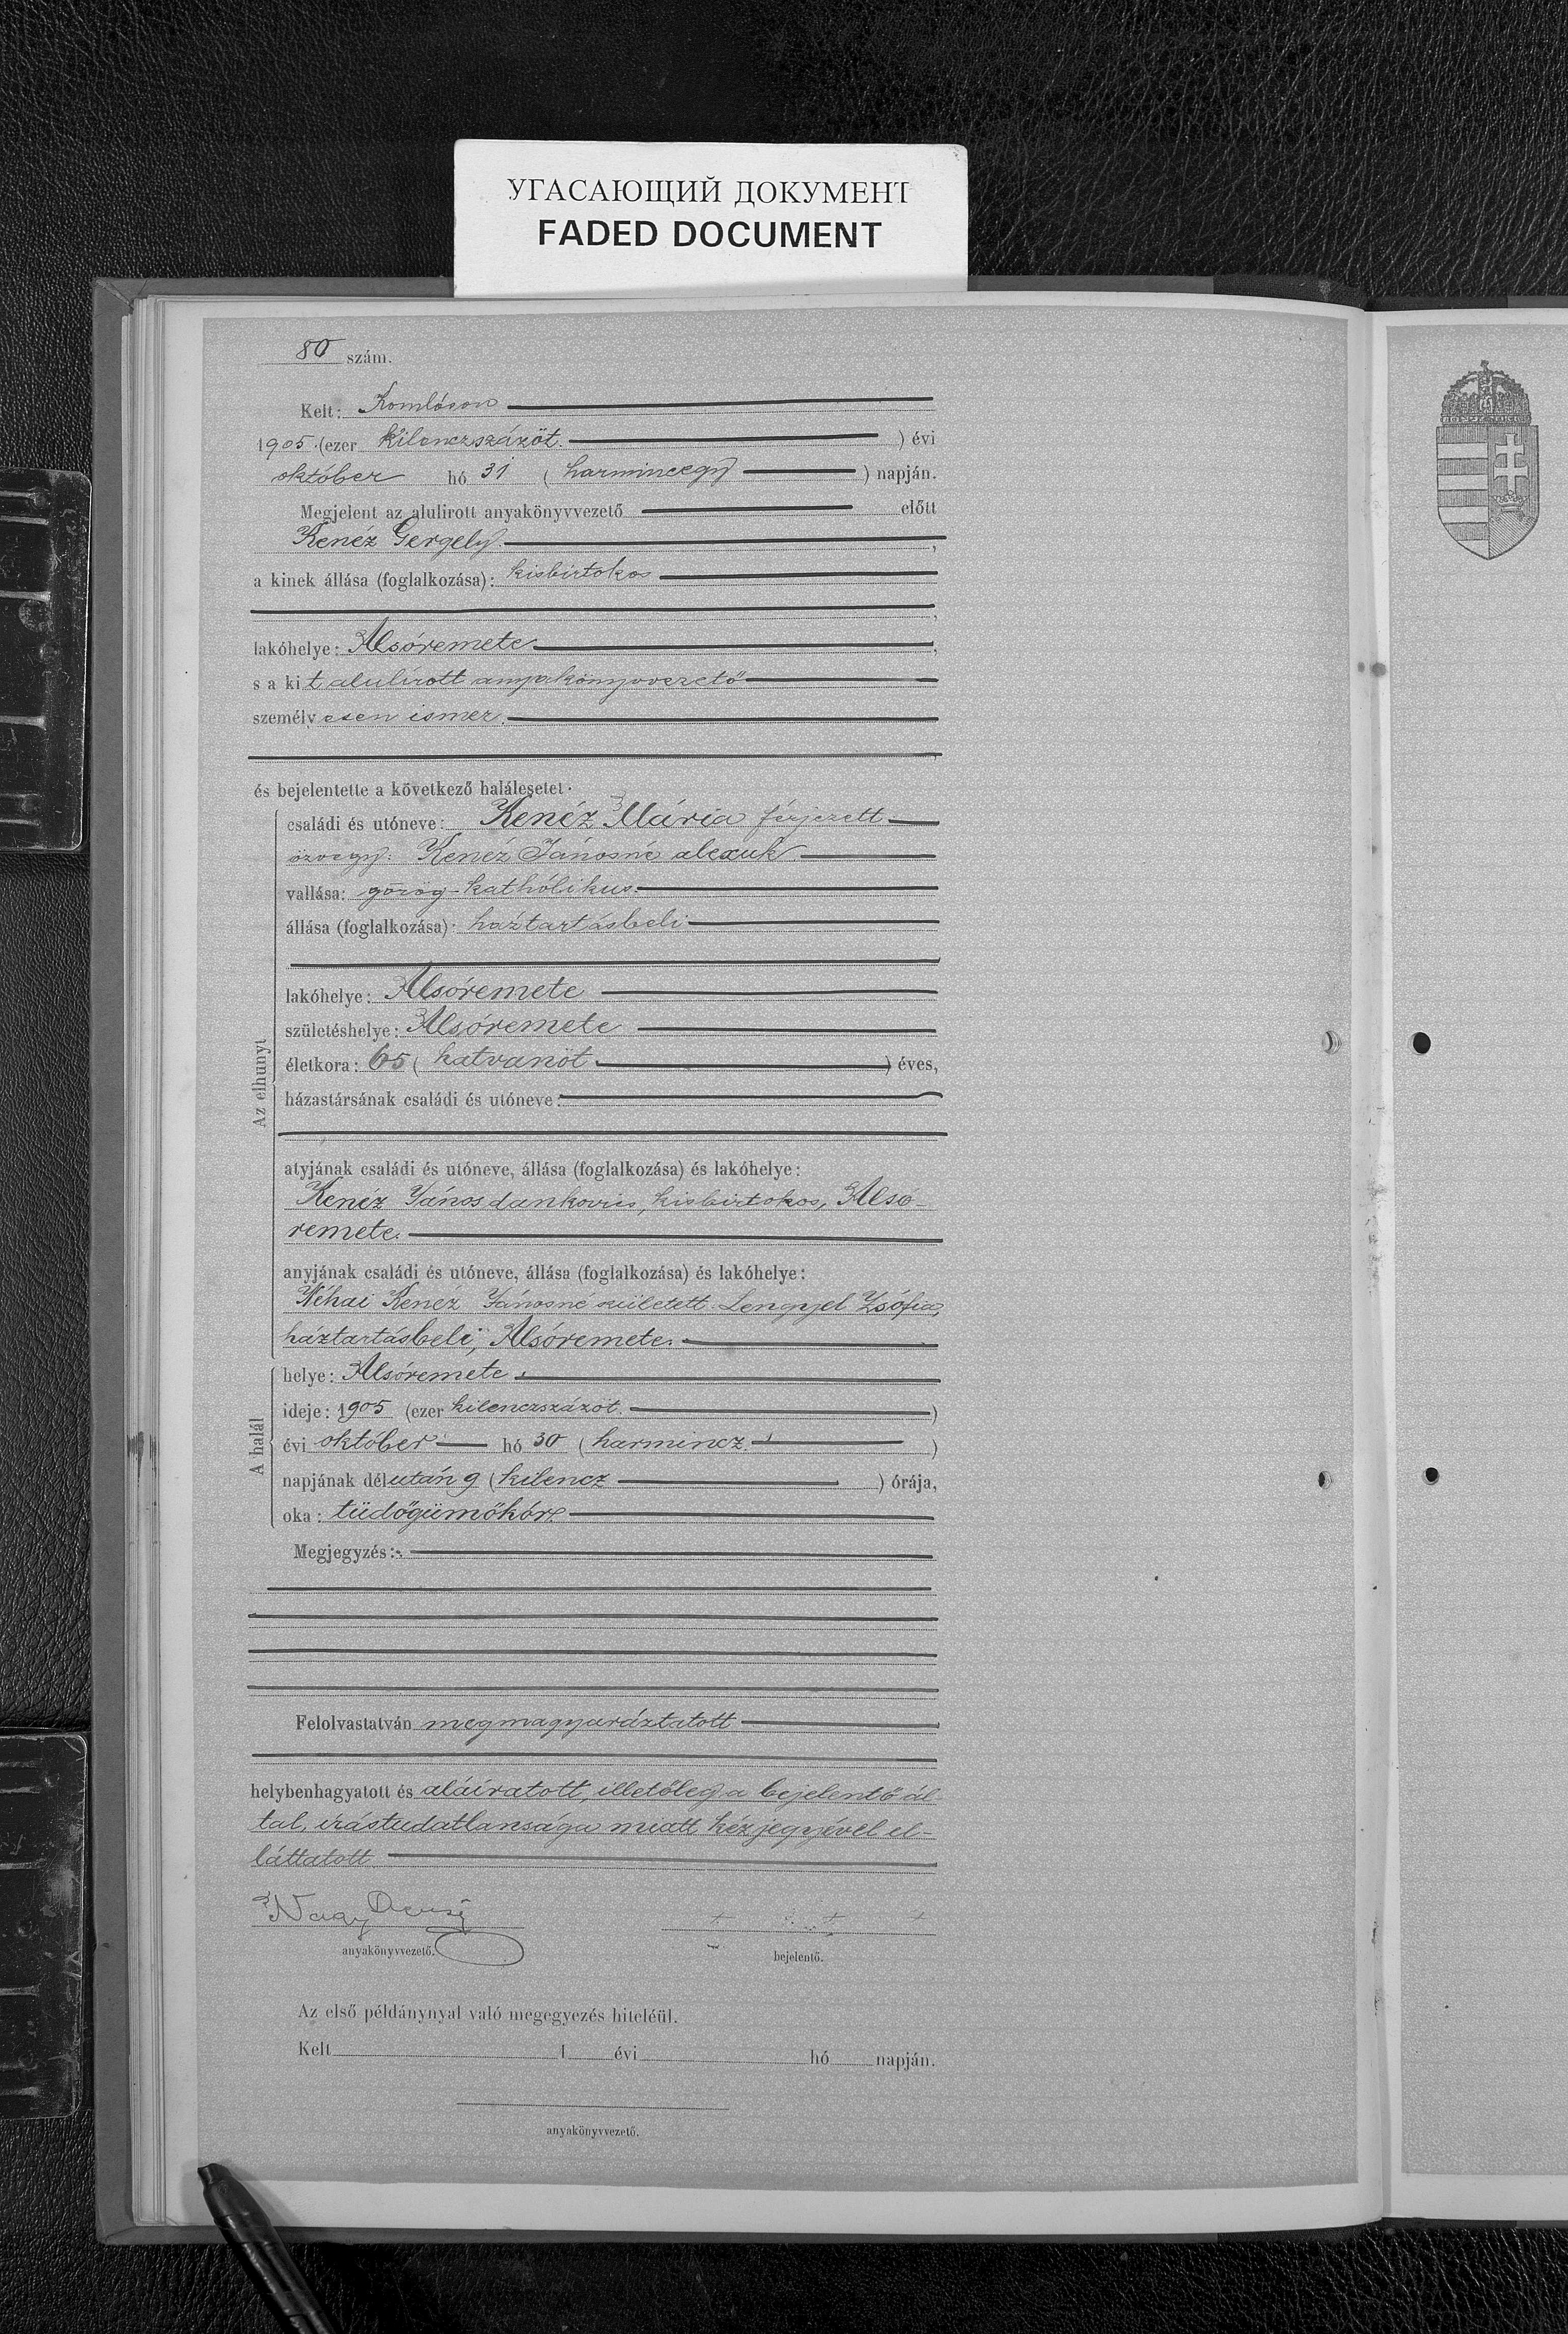 УГАСАЮЩИЙ ДОКУМЕНТ
FADED DOCUMENT
80 szám.
Kelt: Komlóson
1905. (ezer kilenczszázöt ) évi
október hó 31 ( harminczegy ) napján.
Megjelent az alulirott anyakönyvvezető előtt
Kenéz Gergely ,
a kinek állása (foglalkozása): kisbirtokos
,
lakóhelye: Alsóremete ,
s a kit alulírott anyakönyvvezető
személyesen ismer,
,
és bejelentette a következő halálesetet:
Az elhunyt
családi és utóneve: Kenéz Mária férjezett
özvegy: Kenéz Jánosné alexuk
vallása: görög-kathólikus
állása (foglalkozása): háztartásbeli
lakóhelye: Alsóremete
születéshelye: Alsóremete
életkora: 65 ( hatvanöt ) éves,
házastársának családi és utóneve:
atyjának családi és utóneve, állása (foglalkozása) és lakóhelye:
Kenéz János dankovics, kisbirtokos, Alsó-
remete.
anyjának családi és utóneve, állása (foglalkozása) és lakóhelye:
Néhai Kenéz Jánosné született Lengyel Zsófia,
háztartásbeli, Alsóremete.
A halál
helye: Alsóremete
ideje: 1905 (ezer kilenczszázöt. )
évi október hó 30 ( harmincz. )
napjának délután 9 ( kilencz ) órája,
oka: tüdőgümőkór
Megjegyzés:
Felolvastatván megmagyaráztatott
helybenhagyatott és aláíratott, illetőleg a bejelentő ál-
tal, írástudatlansága miatt kézjegyével el-
láttatott
Nagy
anyakönyvvezető.
+ + +
bejelentő.
Az első példánynyal való megegyezés hiteléül.
Kelt 1 évi hó napján.
anyakönyvvezető.